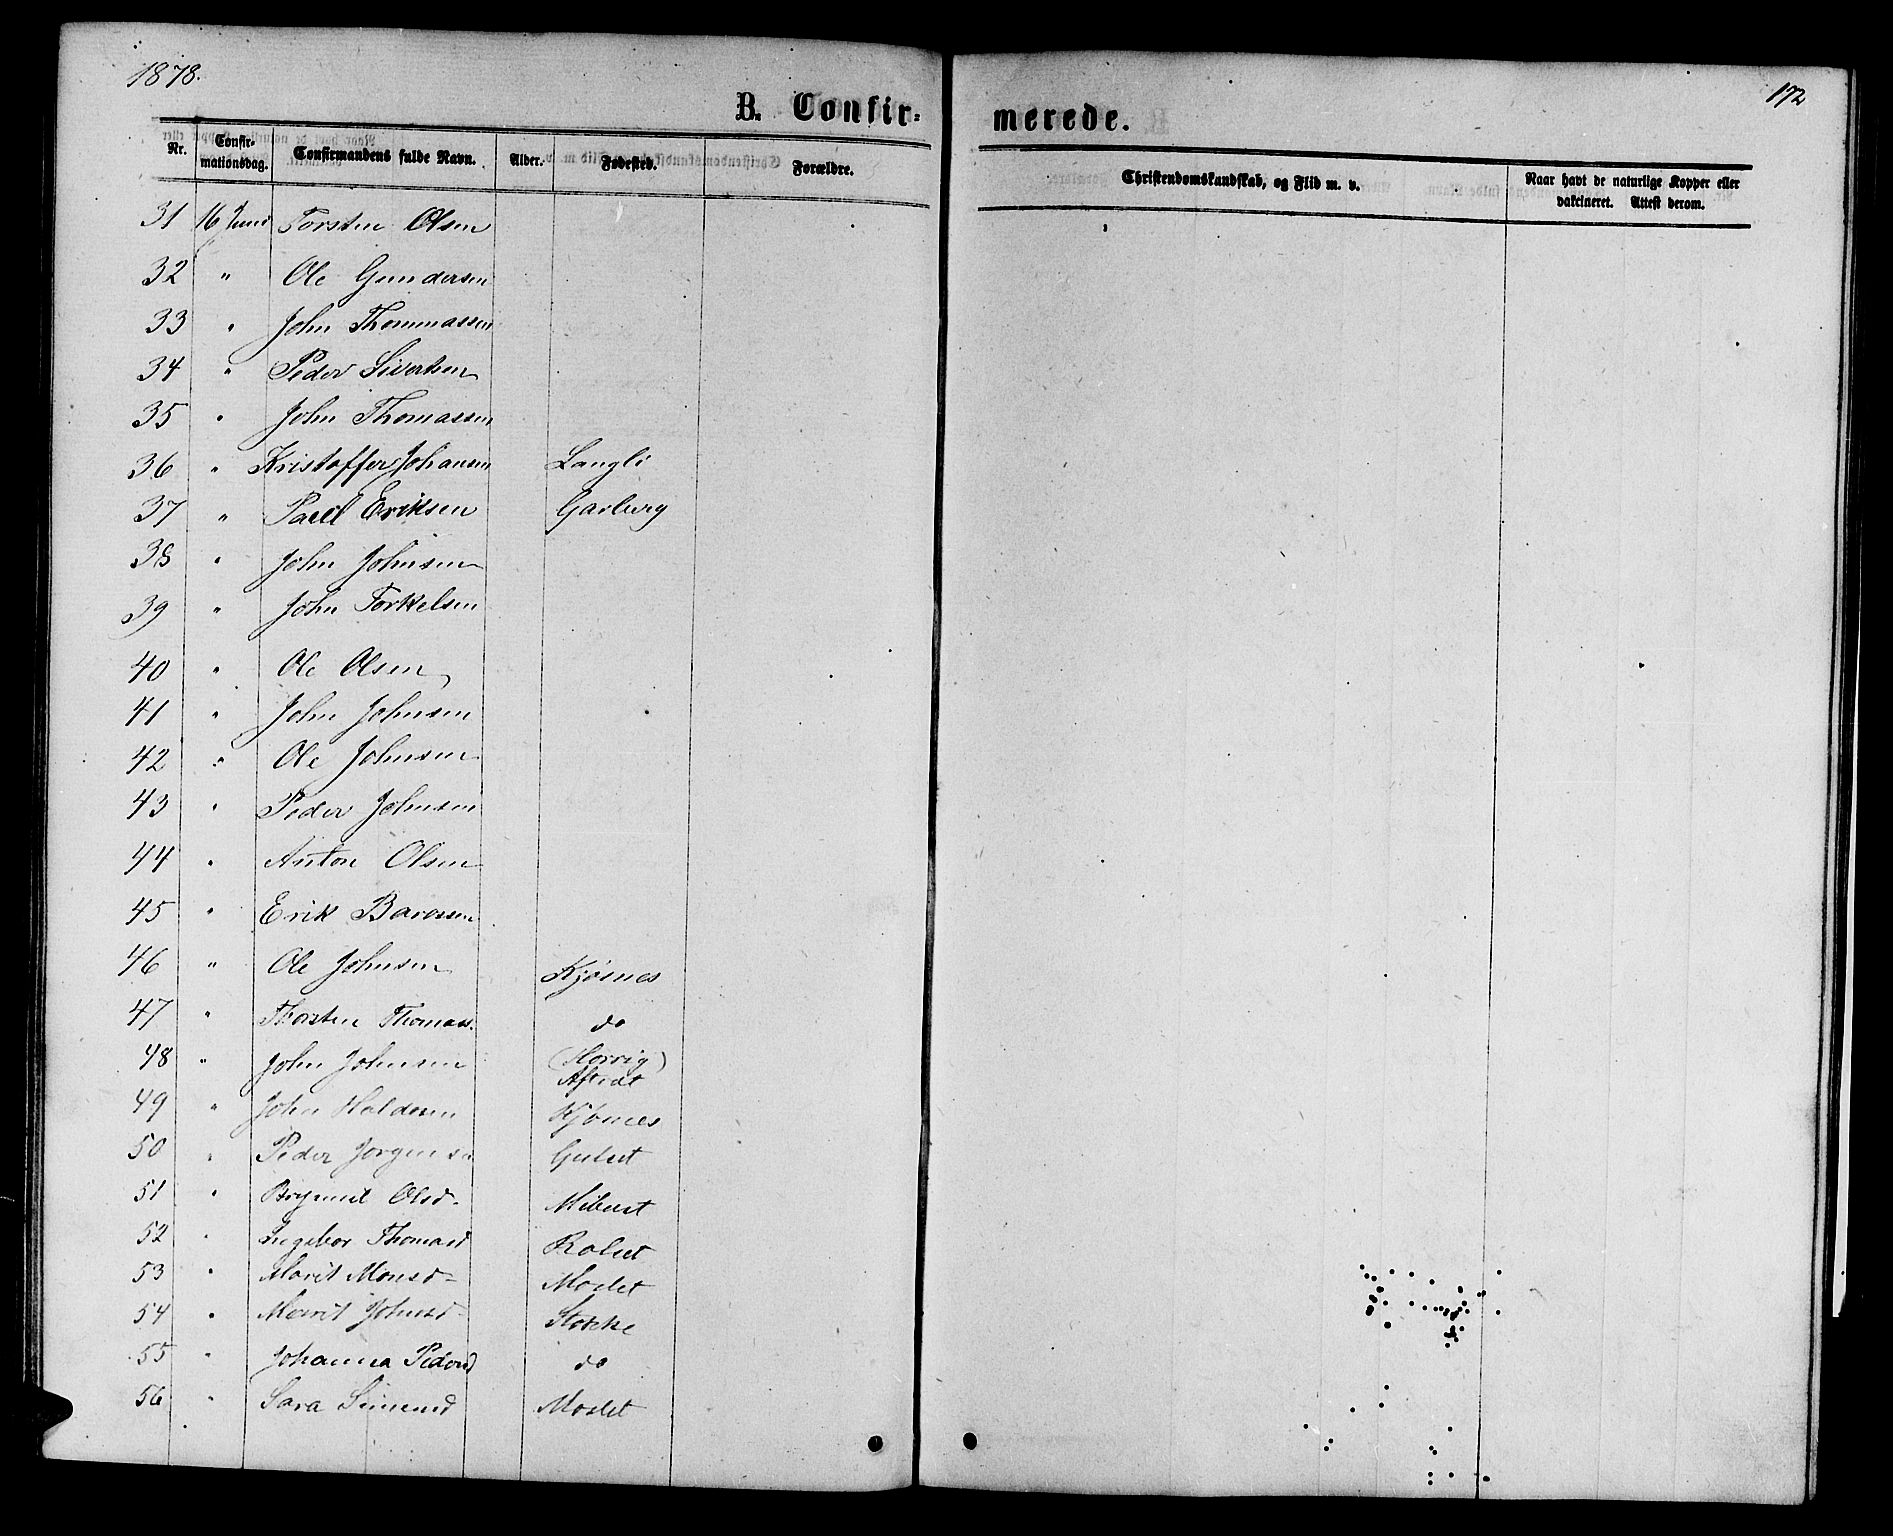 1878.
172
B. Confir=
merede.
Nr. Confir-mationsdag. Confirmandens fulde Navn. Alder. Fødested. Forældre. Christendomskundskab, og Flid m. v. Naar havt de naturlige Kopper eller vakcineret. Attest derom.
31 16 Juni Torsten Olsen
32 " Ole Gundersen
33 " John Thommassen
34 " Peder Sivertsen
35 " John Thomassen
36 " Kristoffer Johansen Langli
37 " Paul Eriksen Garberg
38 " John Johnsen
39 " John Torkelsen
40 " Ole Olsen
41 " John Johnsen
42 " Ole Johnsen
43 " Peder Johnsen
44 " Anton Olsen
45 " Erik
46 " Ole Johnsen Kjøsnes
47 " Thorsten Thomass. do
48 " John Johnsen (Horvig)
Aftret
49 " John Haldosen Kjøsnes
50 " Peder Jørgensen Gulset
51 " Olsd.
52 " Ingebor Thomasd Rolset
53 " Marit Monsd Moslet
54 " Marrit Johnsd Stokke
55 " Johanna Pedersd do
56 " Sara Simensd Moslet